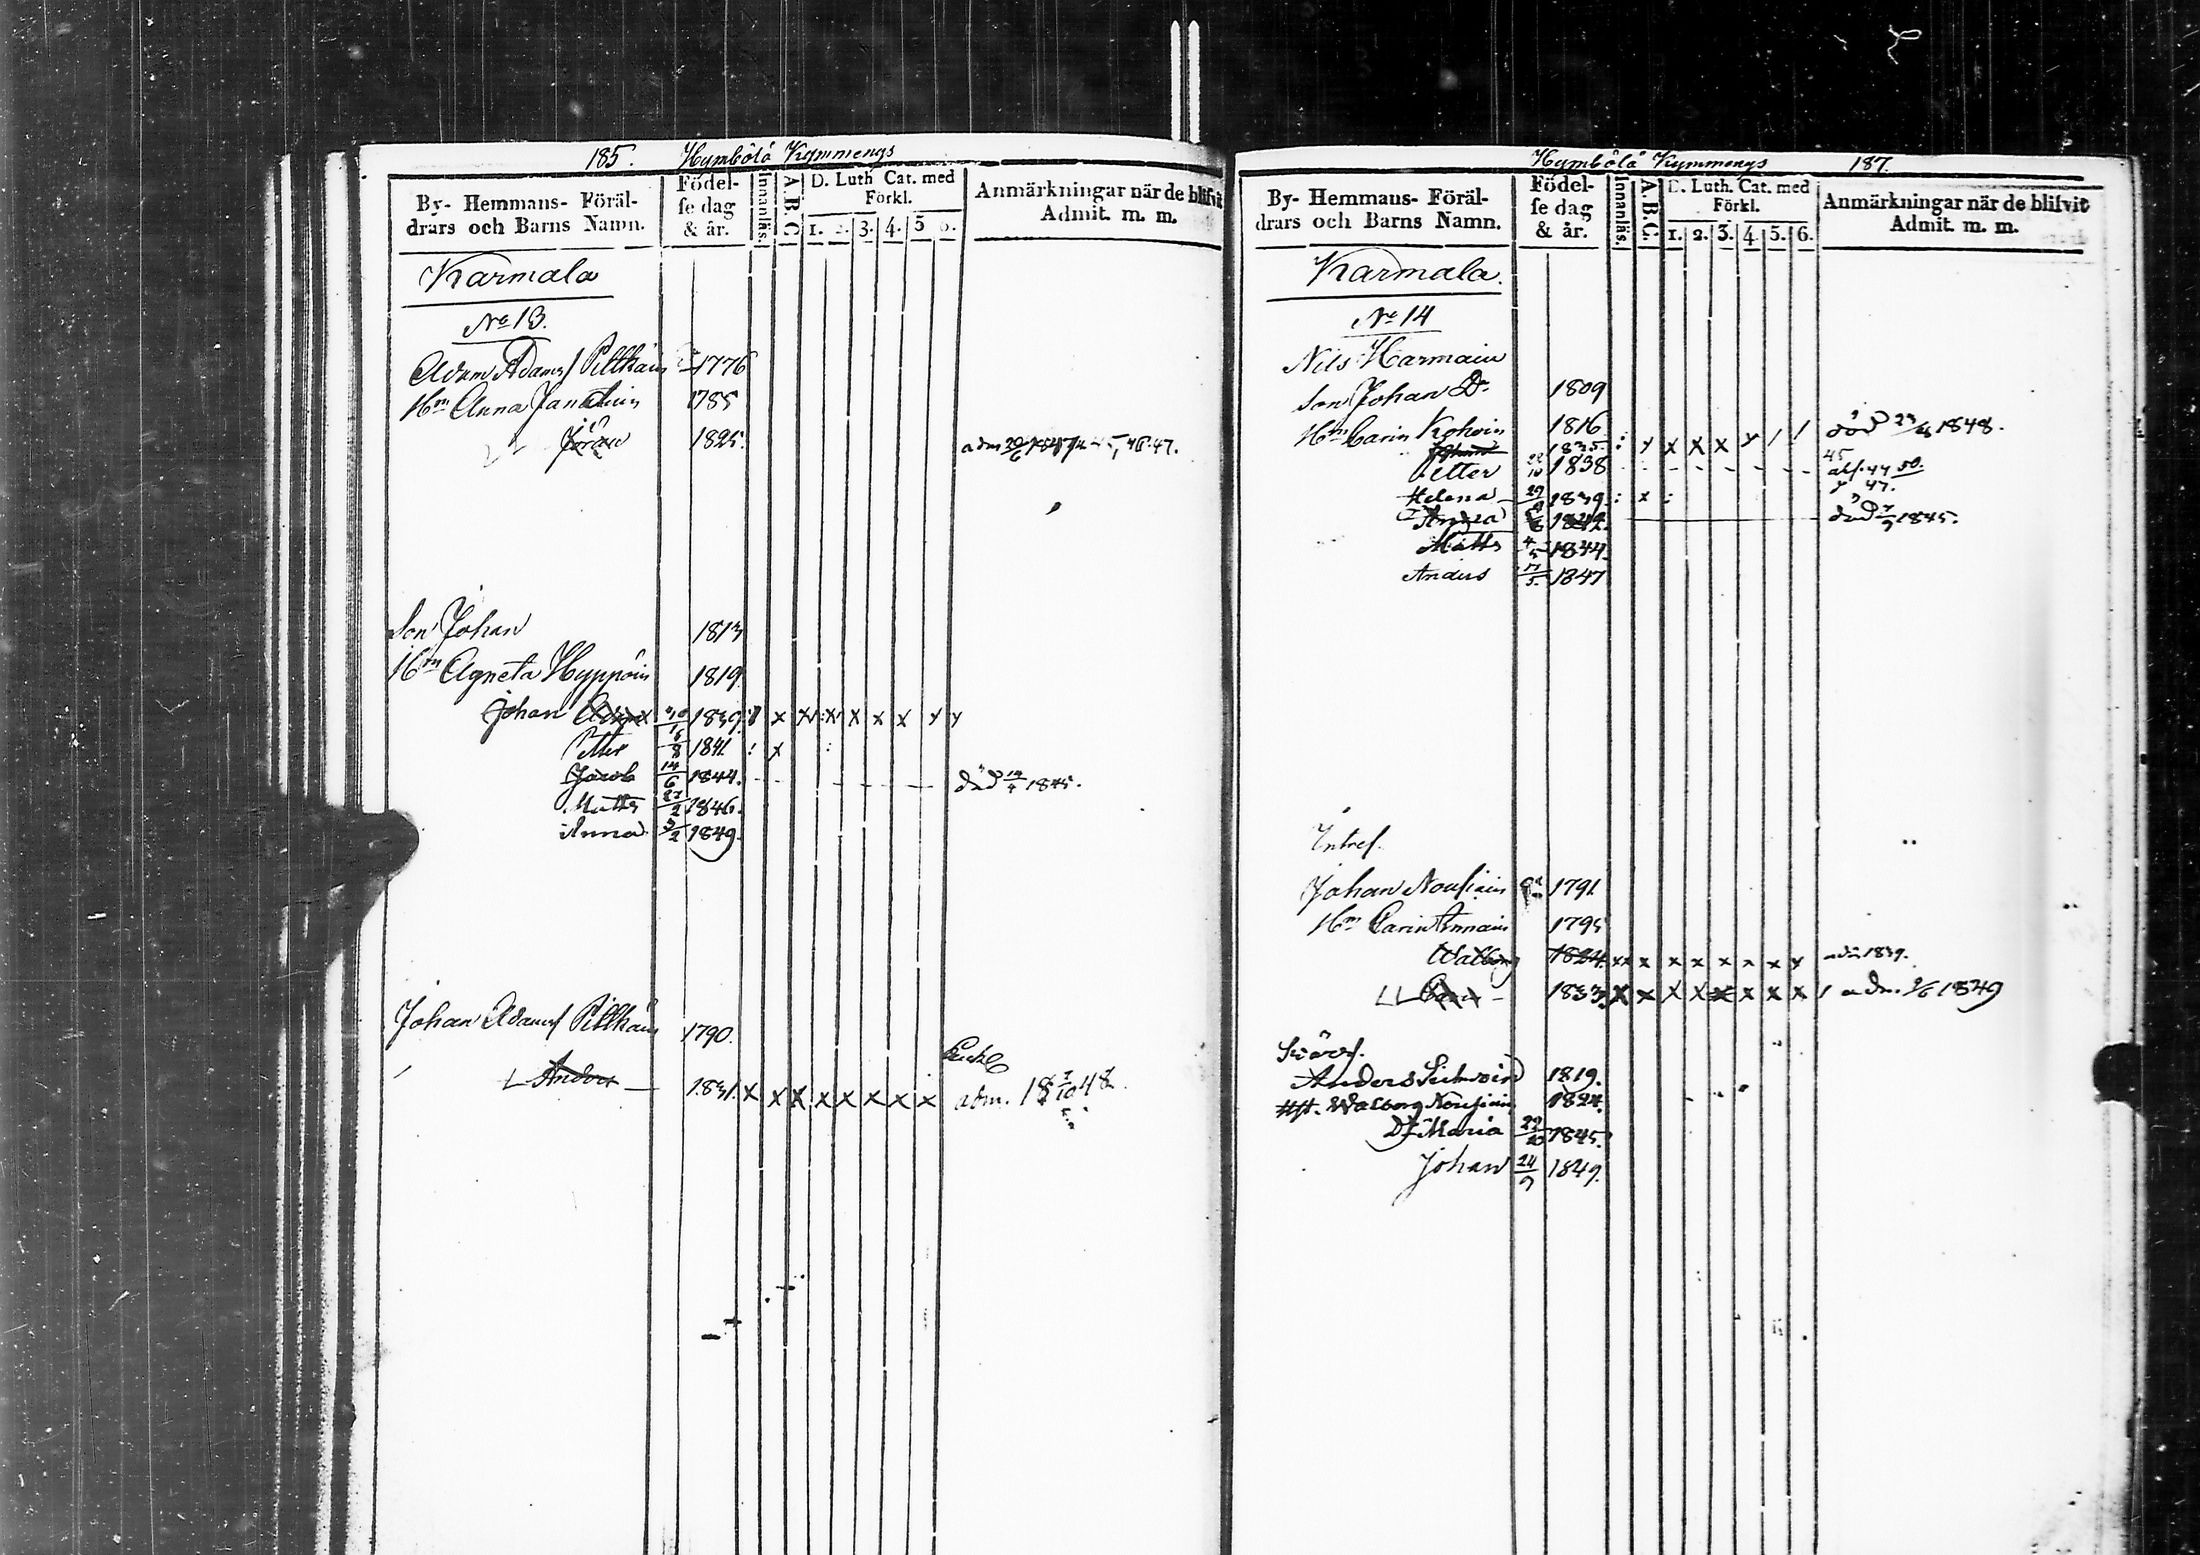 185. Hymbölä Kymmengs
By- Hemmans- Föräl-
drars och Barns Namn.
Födel-
se dag
& år.
Innanläs.
A. B. C
D. Luth. Cat. med
Förkl.
1. 2. 3. 4. 5 6.
Anmärkningar när de blifvit
Admit. m. m.
Karmala
No 13.
Adam Adamsf Pillkäin 1776
Hm Anna 1785
Jöran 1825.
Son Johan 1813
Hm Agneta Hyppöin 1819
Johan 1839 x x x x x x
Petter 6/8 1841 : x
Jacob 14/6 1844. död 1845.
Matts 27/2 1846.
Anna 3/2 1849.
Johan Adamsf Pillkäin 1790.
Anders 1831. x x x x x x x x adm.
Hymbölä Kymmengs 187.
By- Hemmans- Föräl-
drars och Barns Namn.
Födel-
se dag
& år.
Innanläs.
A. B. C.
D. Luth. Cat. med
Förkl.
1. 2. 3. 4. 5. 6.
Anmärkningar när de blifvit
Admit. m. m.
Karmala.
No 14
Nils Harmain
Son Johan Do 1809
Hm Carin Kohvin 1816
Johan 1835. död 1848.
Petter 1838
Helena 1839. : x :
Anna 1842. död 7/9 1845.
Matts 4/5 1844.
Anders 17/5. 1847
Johan Nousiain 1791
Hm Carin Annain 1795
Walborg 1824. x x x x x x x x 1839.
1833. x x x x x x x x adm.
Anders 1819.
Hst. Walborg Nousiain 1824.
Dr Maria 22/10 1845.
Johan 24/9 1849.